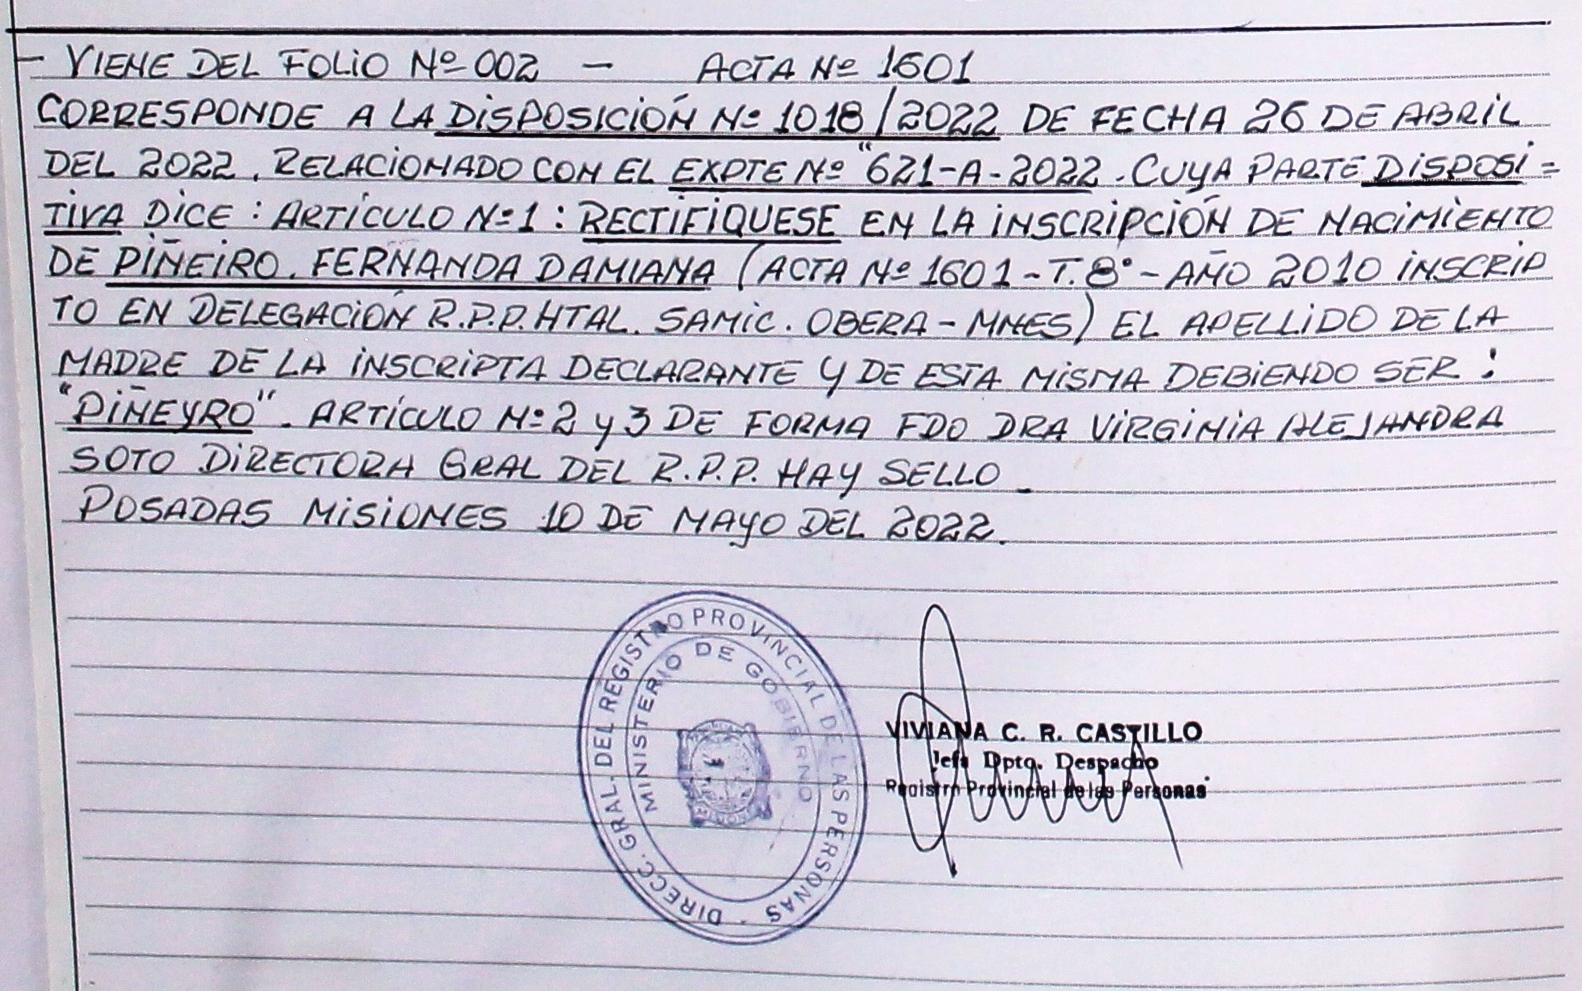 - VIENE DEL FOLIO Nº 002 - ACTA Nº 1601
CORRESPONDE A LA DISPOSICIÓN Nº 1018/2022 DE FECHA 26 DE ABRIL
DEL 2022. RELACIONADO CON EL EXPTE Nº "621-A-2022. CUYA PARTE DISPOSI=
TIVA DICE: ARTÍCULO Nº1: RECTIFÍQUESE EN LA INSCRIPCIÓN DE NACIMIENTO
DE PIÑEIRO. FERNANDA DAMIANA (ACTA Nº 1601-T.8°-AÑO 2010 INSCRIP
TO EN DELEGACIÓN R.P.P. HTAL. SAMIC. OBERA-MNES) EL APELLIDO DE LA
MADRE DE LA INSCRIPTA DECLARANTE Y DE ESTA MISMA DEBIENDO SER:
"PIÑEYRO". ARTÍCULO Nº 2 y 3 DE FORMA FDO DRA VIRGINIA ALEJANDRA
SOTO DIRECTORA GRAL DEL R.P.P. HAY SELLO _
POSADAS MISIONES 10 DE MAYO DEL 2022.
DIRECC. GRAL. DEL REGISTRO PROVINCIAL DE LAS PERSONAS -
MINISTERIO DE GOBIERNO
VIVIANA C. R. CASTILLO
Jefa Dpto. Despacho
Registro Provincial de las Personas